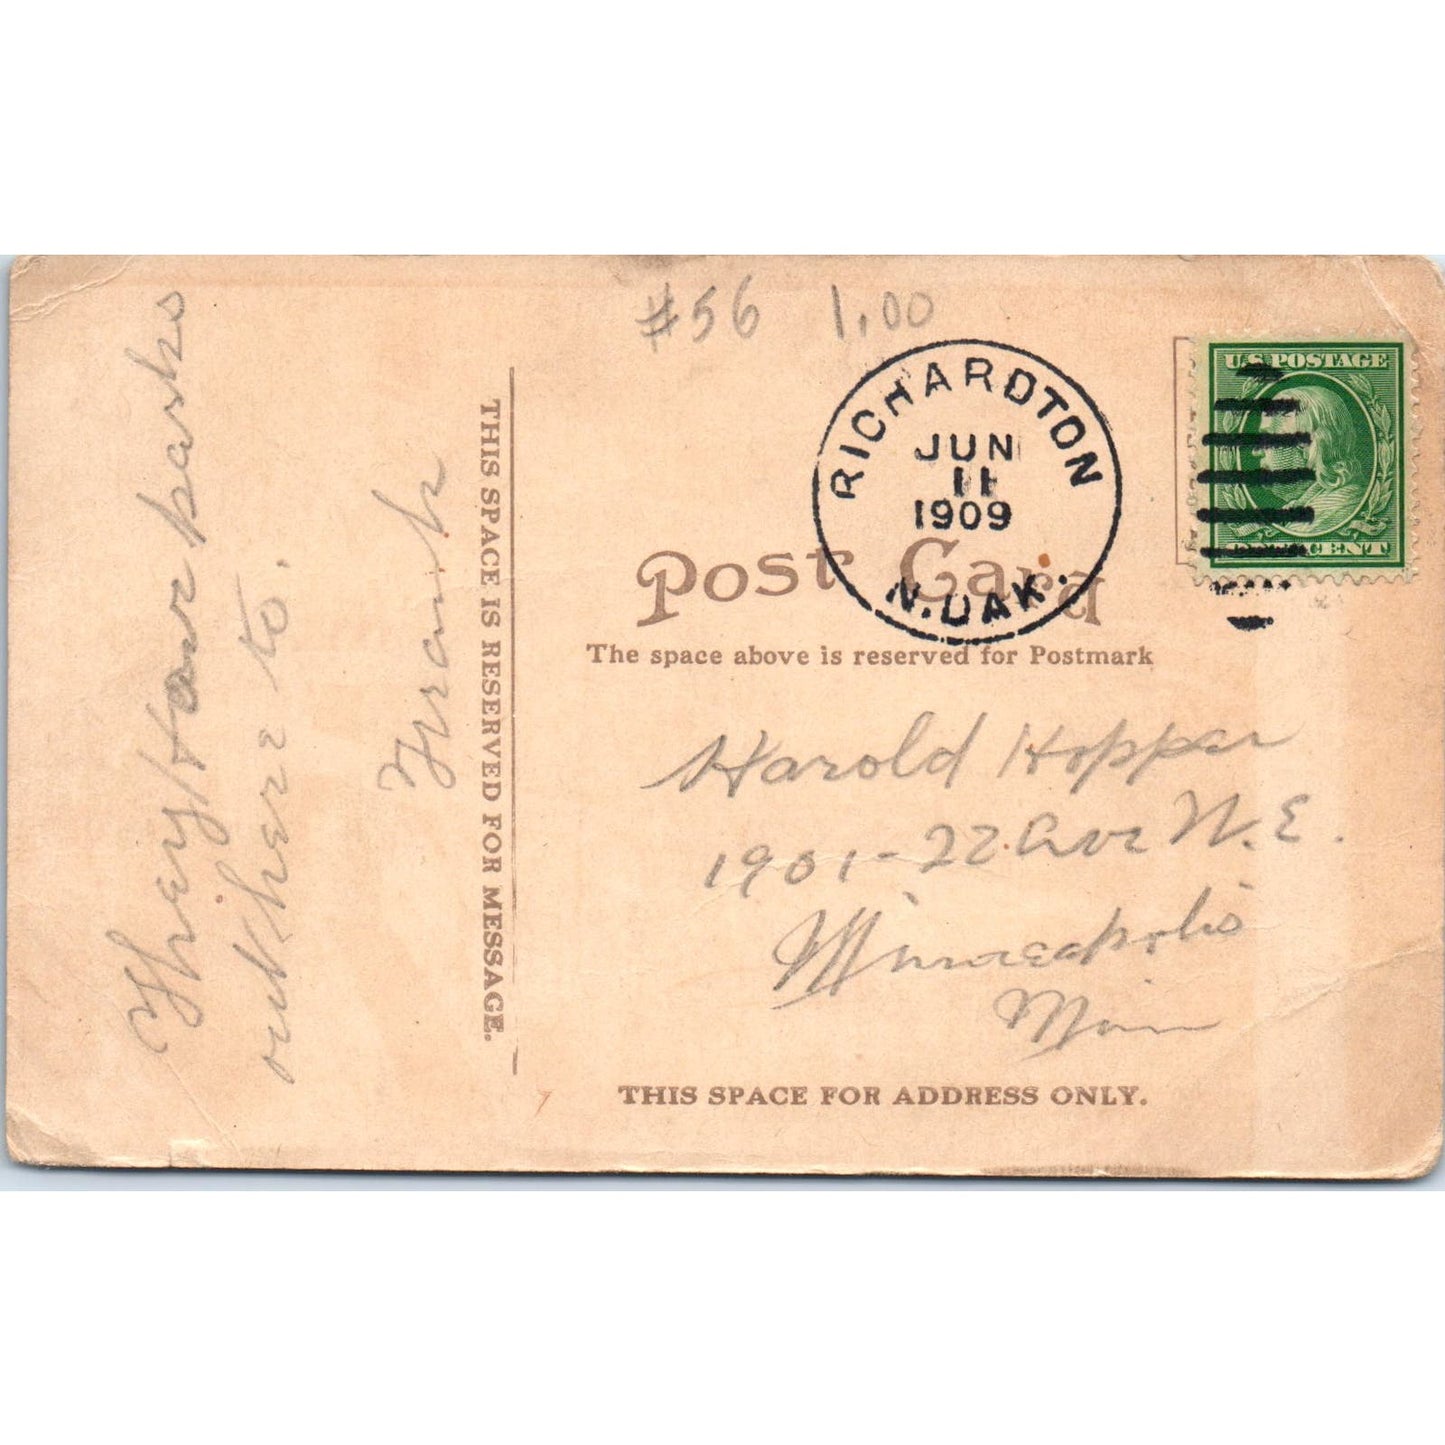 #56 1.00
RICHARDTON
JUN
11
1909
N. DAK.
U.S. POSTAGE
CENT
Post Card
The space above is reserved for Postmark
THIS SPACE IS RESERVED FOR MESSAGE.
They have parks
out here to.
Frank
Harold Hopper
1901-22 Ave N.E.
Minneapolis
Minn
THIS SPACE FOR ADDRESS ONLY.